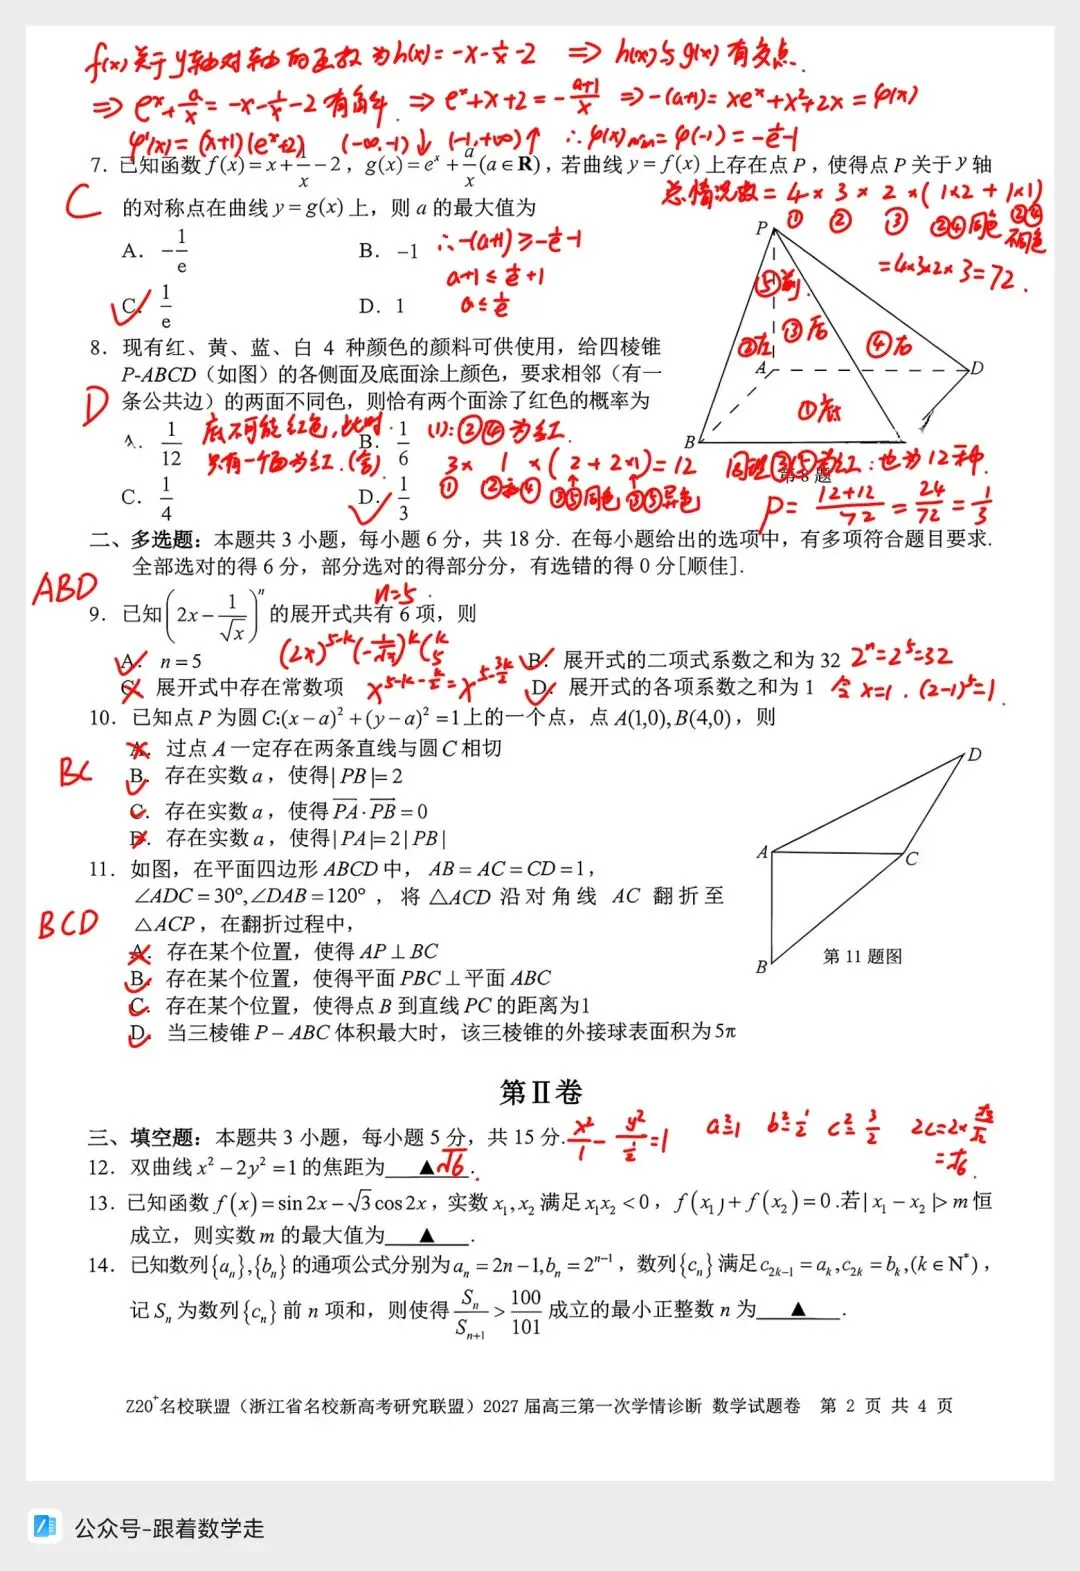 f(x)关于y轴对称的函数为h(x)=-x-1/x-2 ⇒ h(x)与g(x)有交点.
⇒ e^x+a/x=-x-1/x-2有解. ⇒ e^x+x+2=-(a+1)/x ⇒ -(a+1)=xe^x+x²+2x=φ(x)
φ'(x)=(x+1)(e^x+2) (-∞,-1)↓ (-1,+∞)↑ ∴φ(x)min=φ(-1)=-1/e-1
7. 已知函数 f(x)=x+1/x-2，g(x)=e^x+a/x(a∈R)，若曲线 y=f(x)上存在点P，使得点P关于y轴
的对称点在曲线 y=g(x)上，则 a 的最大值为
C
A. -1/e
B. -1
∴-(a+1)≥-1/e-1
a+1≤1/e+1
C. 1/e
D. 1
a≤1/e
总情况数=4×3×2×(1×2+1×1)
① ② ③ ②④同色 ②④不同色
=4×3×2×3=72.
8. 现有红、黄、蓝、白 4 种颜色的颜料可供使用，给四棱锥
P-ABCD（如图）的各侧面及底面涂上颜色，要求相邻（有一
条公共边）的两面不同色，则恰有两个面涂了红色的概率为
D
A. 1/12
B. 1/6
底不可能红色,此时
只有一个面为红.(舍)
(1):②④为红.
3×1×(2+2×1)=12
① ②和④ ③⑤同色 ③⑤异色
C. 1/4
D. 1/3
P
⑤前.
②左
③后
④右
A
D
①底
B
第 8 题
同理③⑤为红:也为12种.
P=(12+12)/72=24/72=1/3
二、多选题：本题共 3 小题，每小题 6 分，共 18 分. 在每小题给出的选项中，有多项符合题目要求.
全部选对的得 6 分，部分选对的得部分分，有选错的得 0 分[顺佳].
ABD
n=5.
9. 已知(2x-1/√x)^n的展开式共有 6 项，则
A. n=5
(2x)^(5-k)(-1/√x)^k C_5^k
B. 展开式的二项式系数之和为 32
2^n=2^5=32
C. 展开式中存在常数项
x^(5-k-k/2)=x^(5-3k/2)
D. 展开式的各项系数之和为 1
令x=1.(2-1)^5=1.
10. 已知点 P 为圆 C:(x-a)²+(y-a)²=1上的一个点，点 A(1,0),B(4,0)，则
BC
A. 过点 A 一定存在两条直线与圆 C 相切
B. 存在实数 a，使得|PB|=2
C. 存在实数 a，使得PA·PB=0
D. 存在实数 a，使得|PA|=2|PB|
11. 如图，在平面四边形 ABCD 中，AB=AC=CD=1，
∠ADC=30°,∠DAB=120°，将 △ACD 沿对角线 AC 翻折至
△ACP，在翻折过程中，
BCD
A. 存在某个位置，使得 AP⊥BC
B. 存在某个位置，使得平面 PBC⊥平面 ABC
C. 存在某个位置，使得点 B 到直线 PC 的距离为1
D. 当三棱锥 P-ABC 体积最大时，该三棱锥的外接球表面积为5π
D
A
C
B
第 11 题图
第Ⅱ卷
三、填空题：本题共 3 小题，每小题 5 分，共 15 分.
x²/1-y²/(1/2)=1 a²=1 b²=1/2 c²=3/2 2c=2×√3/√2
=√6.
12. 双曲线 x²-2y²=1 的焦距为 ▲ √6.
13. 已知函数 f(x)=sin2x-√3cos2x，实数 x₁,x₂ 满足 x₁x₂<0，f(x₁)+f(x₂)=0.若|x₁-x₂|>m 恒
成立，则实数 m 的最大值为 ▲ .
14. 已知数列{aₙ},{bₙ}的通项公式分别为 aₙ=2n-1,bₙ=2^(n-1)，数列{cₙ}满足c₂ₖ₋₁=aₖ,c₂ₖ=bₖ,(k∈N*)，
记 Sₙ 为数列{cₙ}前 n 项和，则使得 Sₙ/Sₙ₊₁>100/101 成立的最小正整数 n 为 ▲ .
Z20⁺名校联盟（浙江省名校新高考研究联盟）2027 届高三第一次学情诊断 数学试题卷 第 2 页 共 4 页
公众号-跟着数学走